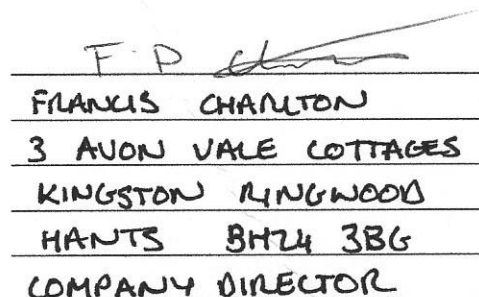 F. P
FRANCIS CHARLTON
3 AVON VALE COTTAGES
KINGSTON RINGWOOD
HANTS BH24 3BG
COMPANY DIRECTOR